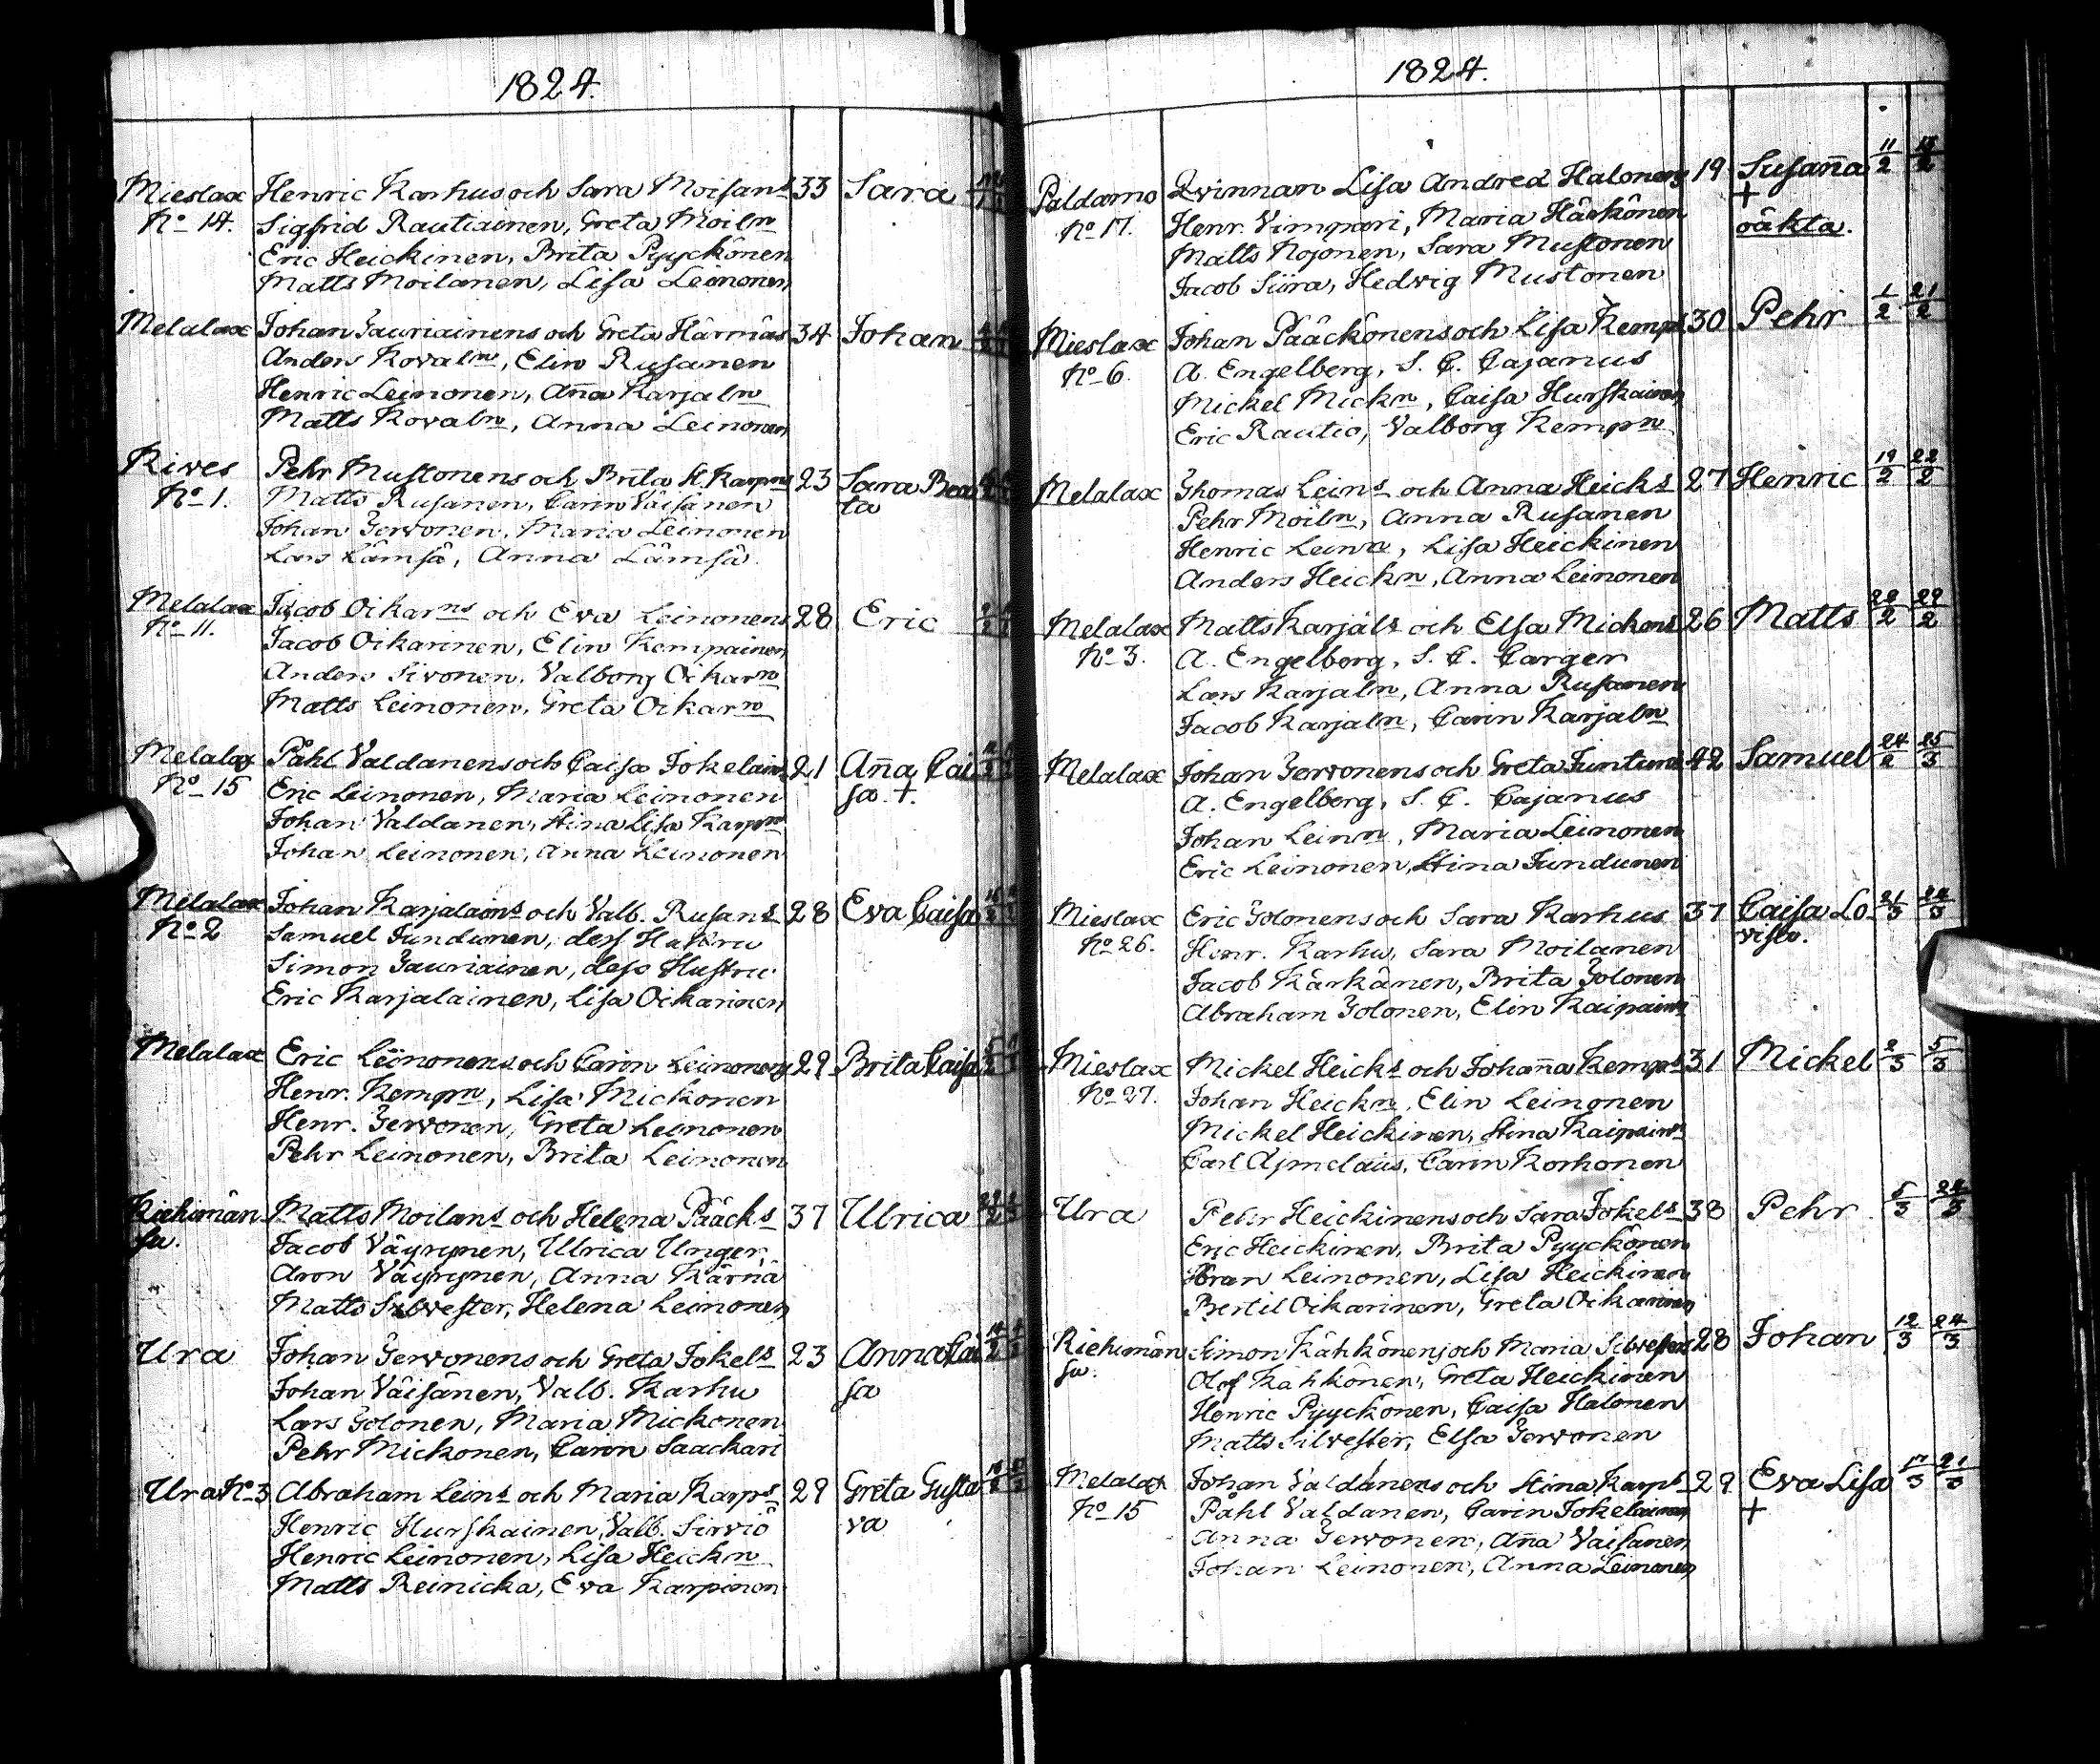 1824.
Mieslax Henric Karhus och Sara Moisans 33 Sara
No 14. Sigfrid Rautiainen, Greta Moiln
Eric Heickinen, Brita Pyyckönen
Matts Moilanen, Lisa Leinonen
Melalax Johan Jauriainens och Greta Härmäs 34 Johan
Anders Kovaln, Elin Rusanen
Henric Leinonen, Aña Karjaln
Matts Kovaln, Anna Leinonen
Kives Pehr Mustonens och Brita St. Karpns 23 Sara Bea
No 1. Matts Rusanen, Carin Väisänen ta
Johan Jervonen, Maria Leinonen
Lars Lämsä, Anna Lämsä.
Melalax Jacob Oikarns och Eva Leinonens 28 Eric
No 11. Jacob Oikarinen, Elin Kempainen
Anders Sivonen, Valborg Oikarn
Matts Leinonen, Greta Oikarn
Melalax Påhl Valdanens och Caisa Jokelains 21 Aña Cai
No 15 Eric Leinonen, Maria Leinonen sa. +.
Johan Valdanen, Stina Lisa Karpn
Johan Leinonen, Anna Leinonen
Melalax Johan Karjalains och Valb. Rusans 28 Eva Caisa
No 2 Samuel Jundunen, dess Hustru
Simon Jauriainen, dess Hustru
Eric Karjalainen, Lisa Oikarinen
Melalax Eric Leinonens och Carin Leinonens 29 Brita Caisa
Henr. Kempn, Lisa Mickonen
Henr. Jervonen, Greta Leinonen
Pehr Leinonen, Brita Leinonen
Kiehimän Matts Moilans och Helena Pääcks 37 Ulrica
su. Jacob Väyrynen, Ulrica Unger,
Aron Väyrynen, Anna Kärnä
Matts Silvester, Helena Leinonen
Ura Johan Jervonens och Greta Jokels 23 Anna Cai
Johan Väisänen, Valb. Karhu sa
Lars Golonen, Maria Mickonen
Pehr Mickonen, Carin Saackari
Ura No 3 Abraham Leins och Maria Karps 29 Greta Gusta
Henric Hurskainen, Valb. Sirviö va
Henric Leinonen, Lisa Heickn
Matts Reinicka, Eva Karpinen
1824.
Paldamo Qvinnan Lisa Andred Halonens 19 Susaña 11/2 15/2
No 17. Henr. Vimpari, Maria Härkönen +
Matts Nojonen, Sara Mustonen oäkta.
Jacob Siira, Hedvig Mustonen
Mieslax Johan Pääckönens och Lisa Kemps 30 Pehr 1/2 21/2
No 6. A. Engelberg, S. C. Cajanus
Mickel Mickn, Caisa Hurskainen
Eric Rautio, Valborg Kempn
Melalax Thomas Leins och Anna Heicks 27 Henric 19/2 22/2
Pehr Moiln, Anna Rusanen
Henric Leinn, Lisa Heickinen
Anders Heickn, Anna Leinonen
Melalax Matts Karjäls och Elsa Mickons 26 Matts 28/2 29/2
No 3. A. Engelberg, S. C. Carger
Lars Karjaln, Anna Rusanen
Jacob Karjaln, Carin Karjaln
Melalax Johan Jervonens och Greta Juntuns 42 Samuel 24/2 25/3
A. Engelberg, S. C. Cajanus
Johan Leinn, Maria Leinonen
Eric Leinonen, Stina Jundunen
Mieslax Eric Golonens och Sara Karhus 37 Caisa Lo- 21/3 24/3
No 26. Henr. Karhu, Sara Moilanen visa.
Jacob Kärkänen, Brita Golonen
Abraham Golonen, Elin Kaipainn
Mieslax Mickel Heicks och Johaña Kemps 31 Mickel 2/3 5/3
No 27. Johan Heickn, Elin Leinonen
Mickel Heickinen, Stina Kaipainn
Carl Ajmelaus, Carin Korhonen
Ura Pehr Heickinens och Sara Jokels 38 Pehr 5/3 24/3
Eric Heickinen, Brita Pyyckönen
Leinonen, Lisa Heickinen
Bertil Oikarinen, Greta Oikarinen
Kiehimän Simon Kähkönens och Maria Silvesters 28 Johan 12/3 24/3
su. Olof Kähkönen, Greta Heickinen
Henric Pyyckönen, Caisa Halonen
Matts Silvester, Elsa Jervonen
Melalax Johan Valdanens och Stina Karps 29 Eva Lisa 17/3 21/3
No 15 Påhl Valdanen, Carin Jokelainen +
Anna Jervonen, Aña Vaisanen
Johan Leinonen, Anna Leinonen